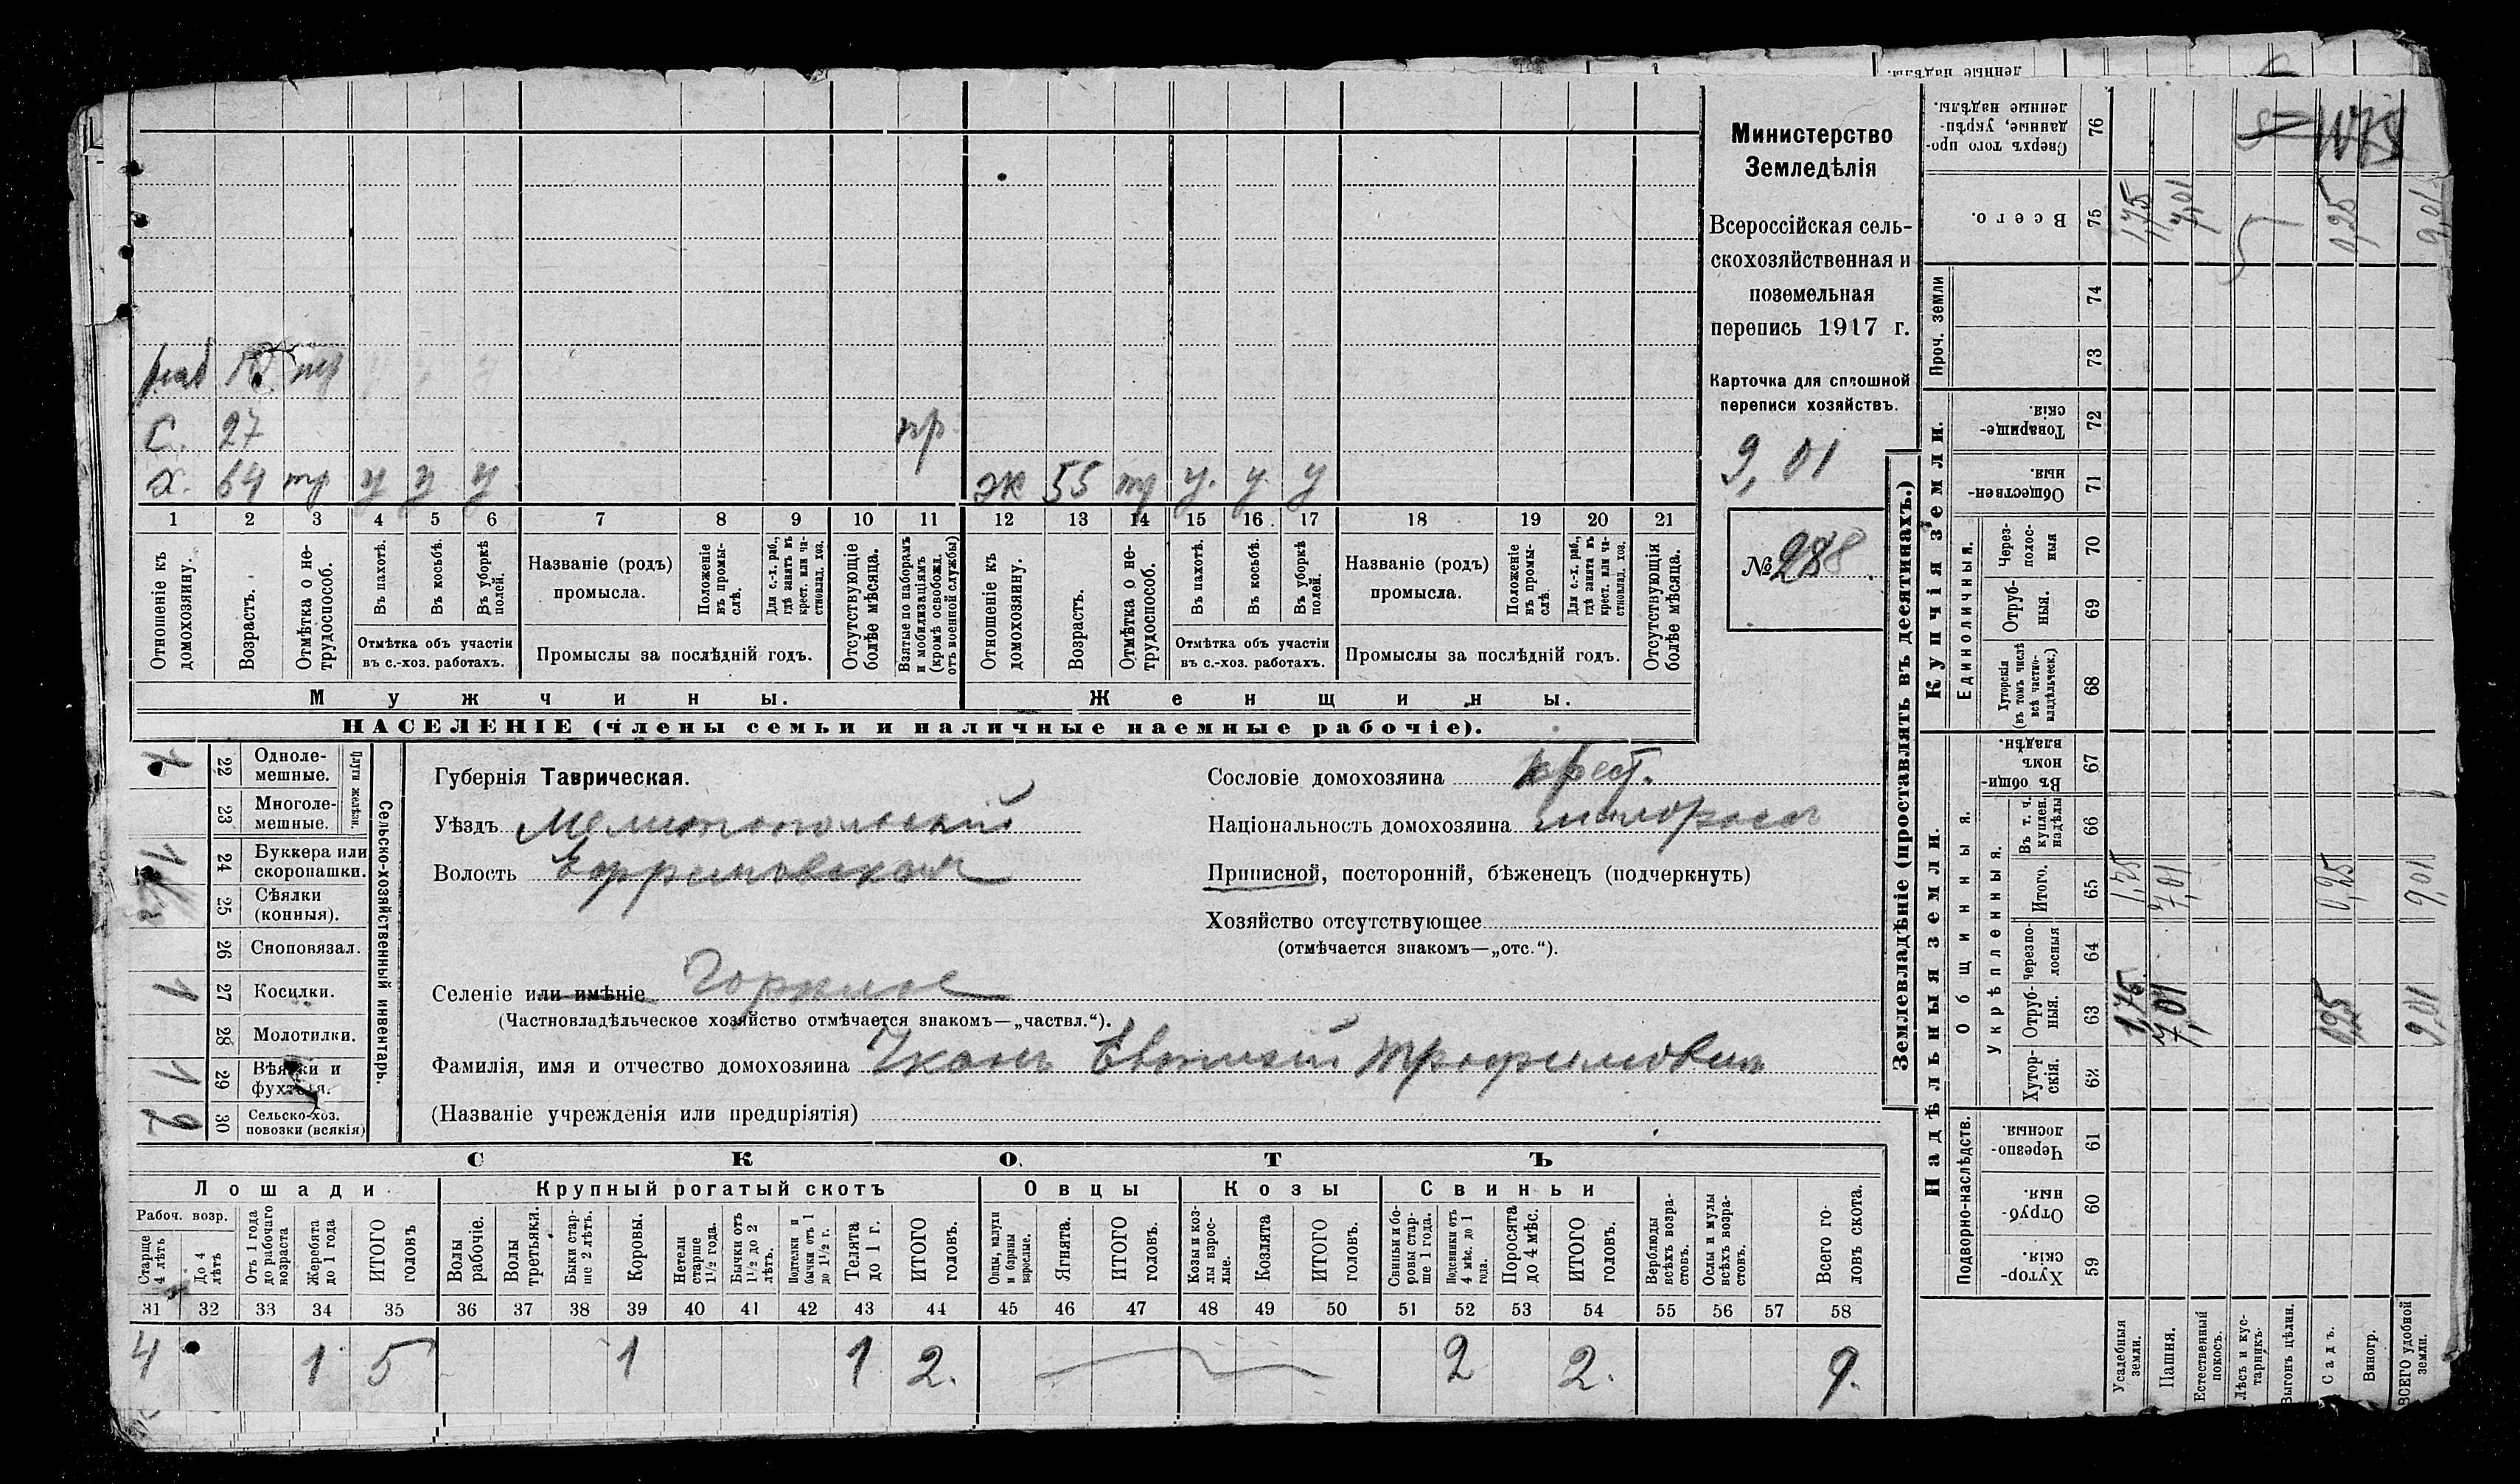 Министерство
Земледѣлія
Всероссійская сель-
скохозяйственная и
поземельная
перепись 1917 г.
Карточка для сплошной
переписи хозяйствъ.
9,01
№ 288
раб
С. 27 пр.
х. 64 тр у у у ж 55 тр у. у. у
1 2 3 4 5 6 7 8 9 10 11 12 13 14 15 16 17 18 19 20 21
Отношеніе къ домохозяину.
Возрастъ.
Отмѣтка о не-трудоспособ.
Въ пахотѣ.
Въ косьбѣ.
Въ уборкѣ полей.
Отмѣтка объ участіи
въ с.-хоз. работахъ.
Названіе (родъ)
промысла.
Положеніе въ промы-слѣ.
Для с.-х. раб., гдѣ занятъ въ крест. или ча-стновлад. хоз.
Промыслы за послѣдній годъ.
Отсутствующіе болѣе мѣсяца.
Взятые по наборамъ и мобилизаціямъ (кромѣ освобожд. отъ военной службы)
Отношеніе къ домохозяину.
Возрастъ.
Отмѣтка о не-трудоспособ.
Въ пахотѣ.
Въ косьбѣ.
Въ уборкѣ полей.
Отмѣтка объ участіи
въ с.-хоз. работахъ.
Названіе (родъ)
промысла.
Положеніе въ промы-слѣ.
Для с.-х. раб., гдѣ занята въ крест. или ча-стновлад. хоз.
Промыслы за послѣдній годъ.
Отсутствующія болѣе мѣсяца.
Мужчины.
Женщины.
НАСЕЛЕНІЕ (члены семьи и наличные наемные рабочіе).
Сельско-хозяйственный инвентарь.
Плуги желѣзн.
22 Одноле-мешные.
23 Многоле-мешные.
24 Буккера или скоропашки. 1
25 Сѣялки (конныя).
26 Сноповязал.
27 Косилки. 1
28 Молотилки.
29 Вѣялки и фухтеля. 1
30 Сельско-хоз. повозки (всякія) 2
Губернія Таврическая.
Уѣздъ Мелитопольскій
Волость Ефремовская
Селеніе или имѣніе Горькое
(Частновладѣльческое хозяйство отмѣчается знакомъ—„частвл.“).
Фамилія, имя и отчество домохозяина Ткачъ Евтихій Трофимовичъ
(Названіе учрежденія или предпріятія)
Сословіе домохозяина крест.
Національность домохозяина малороссъ
Приписной, посторонній, бѣженецъ (подчеркнуть)
Хозяйство отсутствующее
(отмѣчается знакомъ—„отс.“).
СКОТЪ
Лошади
Крупный рогатый скотъ
Овцы
Козы
Свиньи
Рабоч. возр.
Старше 4 лѣтъ
До 4 лѣтъ
Отъ 1 года до рабочаго возраста
Жеребята до 1 года
ИТОГО головъ
Волы рабочіе.
Волы третьяки.
Быки стар-ше 2 лѣтъ.
Коровы.
Нетели старше 1½ года.
Бычки отъ 1½ до 2 лѣтъ.
Подтелки и бычки отъ 1 до 1½ г.
Телята до 1 г.
ИТОГО головъ.
Овцы, валухи и бараны взрослые.
Ягнята.
ИТОГО головъ.
Козы и коз-лы взрос-лые.
Козлята
ИТОГО головъ.
Свиньи и бо-ровы стар-ше 1 года.
Подсвинки отъ 4 мѣс. до 1 года.
Поросята до 4 мѣс.
ИТОГО головъ.
Верблюды всѣхъ возра-стовъ.
Ослы и мулы всѣхъ возра-стовъ.
Всего го-ловъ скота.
31 32 33 34 35 36 37 38 39 40 41 42 43 44 45 46 47 48 49 50 51 52 53 54 55 56 57 58
4 1 5 1 1 2. 2 2. 9.
Землевладѣніе (проставлять въ десятинахъ.)
Надѣльныя земли.
Купчія земли.
Проч. земли
Сверхъ того про-данные, укрѣп-ленные надѣлы.
76
Всего.
75
74
73
Товарище-скія.
72
Обществен-ныя.
71
Единоличныя.
Через-полос-ныя
70
Отруб-ныя.
69
Хуторскія (въ томъ числѣ всѣ частно-владѣльческ.)
68
Общинныя.
Въ общи-номъ владѣн.
67
Укрѣпленныя.
Въ т. ч. куплен. надѣлы
66
Итого.
65
Черезпо-лосныя
64
Отруб-ныя.
63
Хутор-скія.
62
Подворно-наслѣдств.
Черезпо-лосныя.
61
Отруб-ныя.
60
Хутор-скія.
59
Усадебныя земли.
Пашня.
Естественный покосъ.
Лѣсъ и кус-тарникъ.
Выгонъ цѣлин.
Садъ.
Виногр.
ВСЕГО удобной земли.
1,75 7,01 0,25 9,01
1,75 7,01 0,25 9,01
1,75 7,01 0,25 9,01